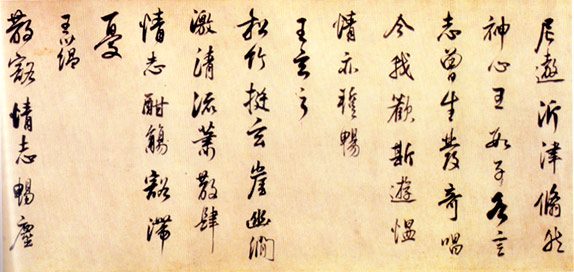 尼遨沂津翛然
神心王數子各言
志曾生發奇唱
今我歡斯遊慍
情亦暢
王玄之
松竹挺玄崖幽澗
激清流蕭散肆
情志酣觴豁滯
憂
王蘊
散豁情志暢塵